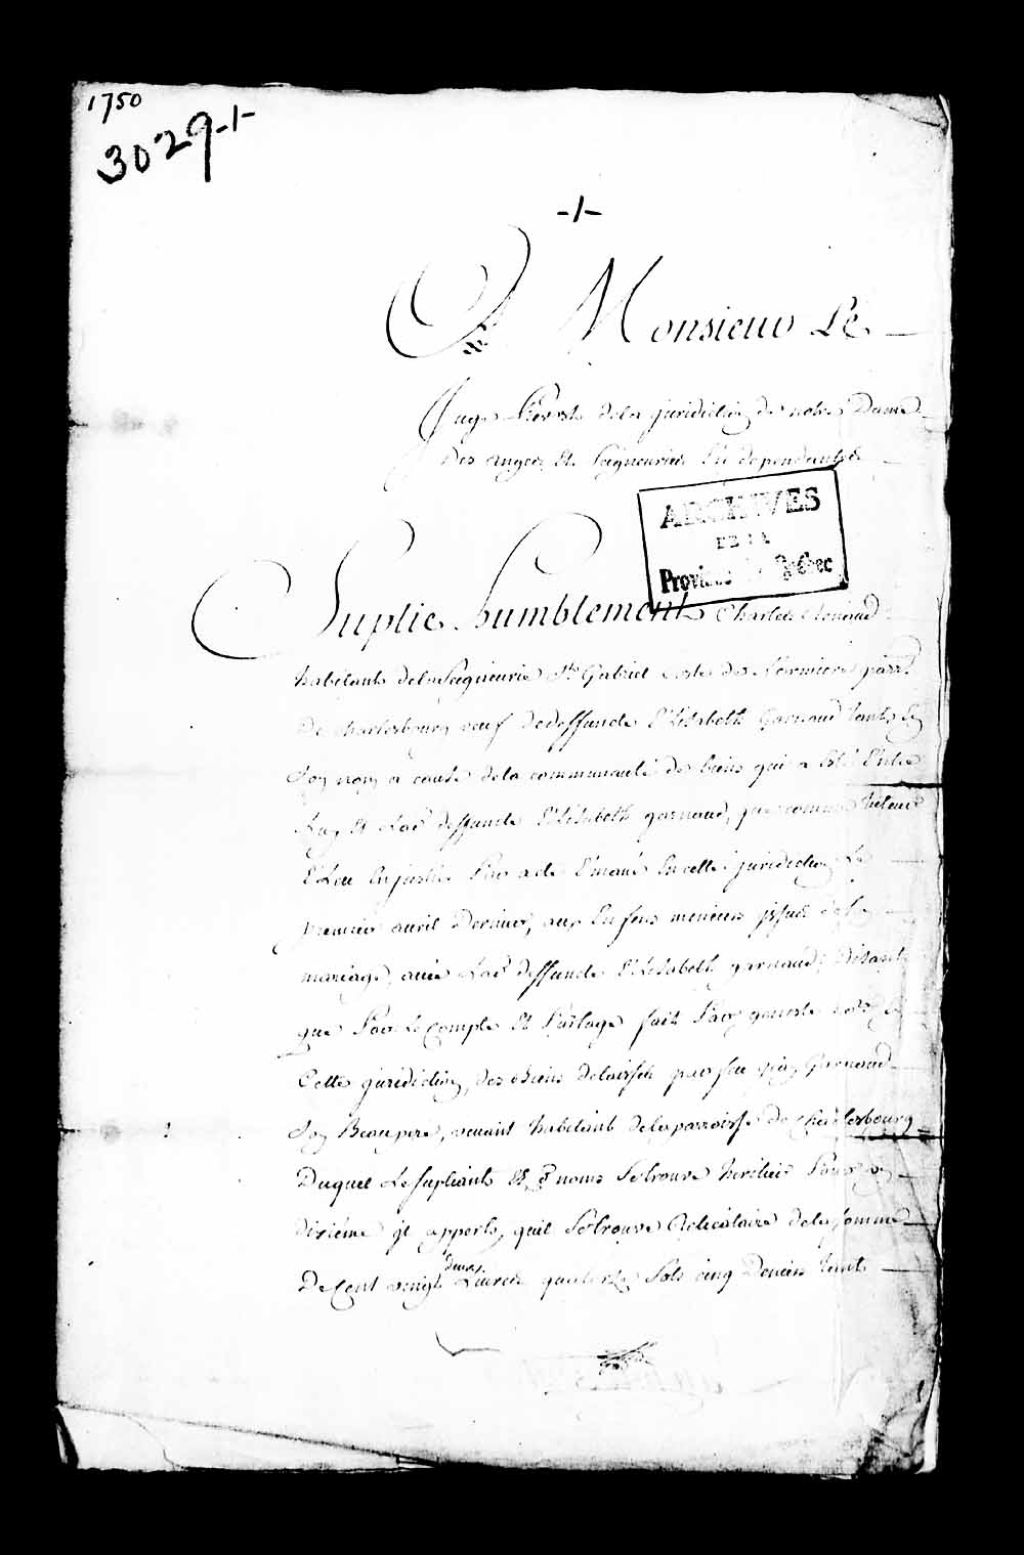 1750
3029-1-
-1-
A Monsieur Le
Juge Prevost de la juridiction de notre Dame
Des anges Et Seigneuries En dependantes
ARCHIVES
DE LA
Province de Québec
Suplie humblement Charles
habitant dela Seigneurie St Gabriel coste des parr
De charlesbourg veuf de deffunte Elisabeth Garnaud tant En
Son nom a cause dela communauté de biens qui a Esté Entre
Luy Et Lad deffunte Elisabeth garnaud, que comme tuteur
Eleu En justice Par acte Emané En cette juridiction Le
premier avril Dernier, aux Enfens mineurs issus de
mariage, avec Lad deffunte Elisabeth garnaud; Disant
que Par Le Compte Et Partage fait Par
Cette juridiction, des Biens delaissés par feu Garnaud
Son Beaupere, vivant habitant dela parroisse de Charlesbourg
Duquel Le supliant Es noms Se trouve heritier Pour un
dixiéme il apperts, quil Se trouve Relicataire dela somme
De Cent vingt deux Livres quatorze Sols cinq Deniers tant